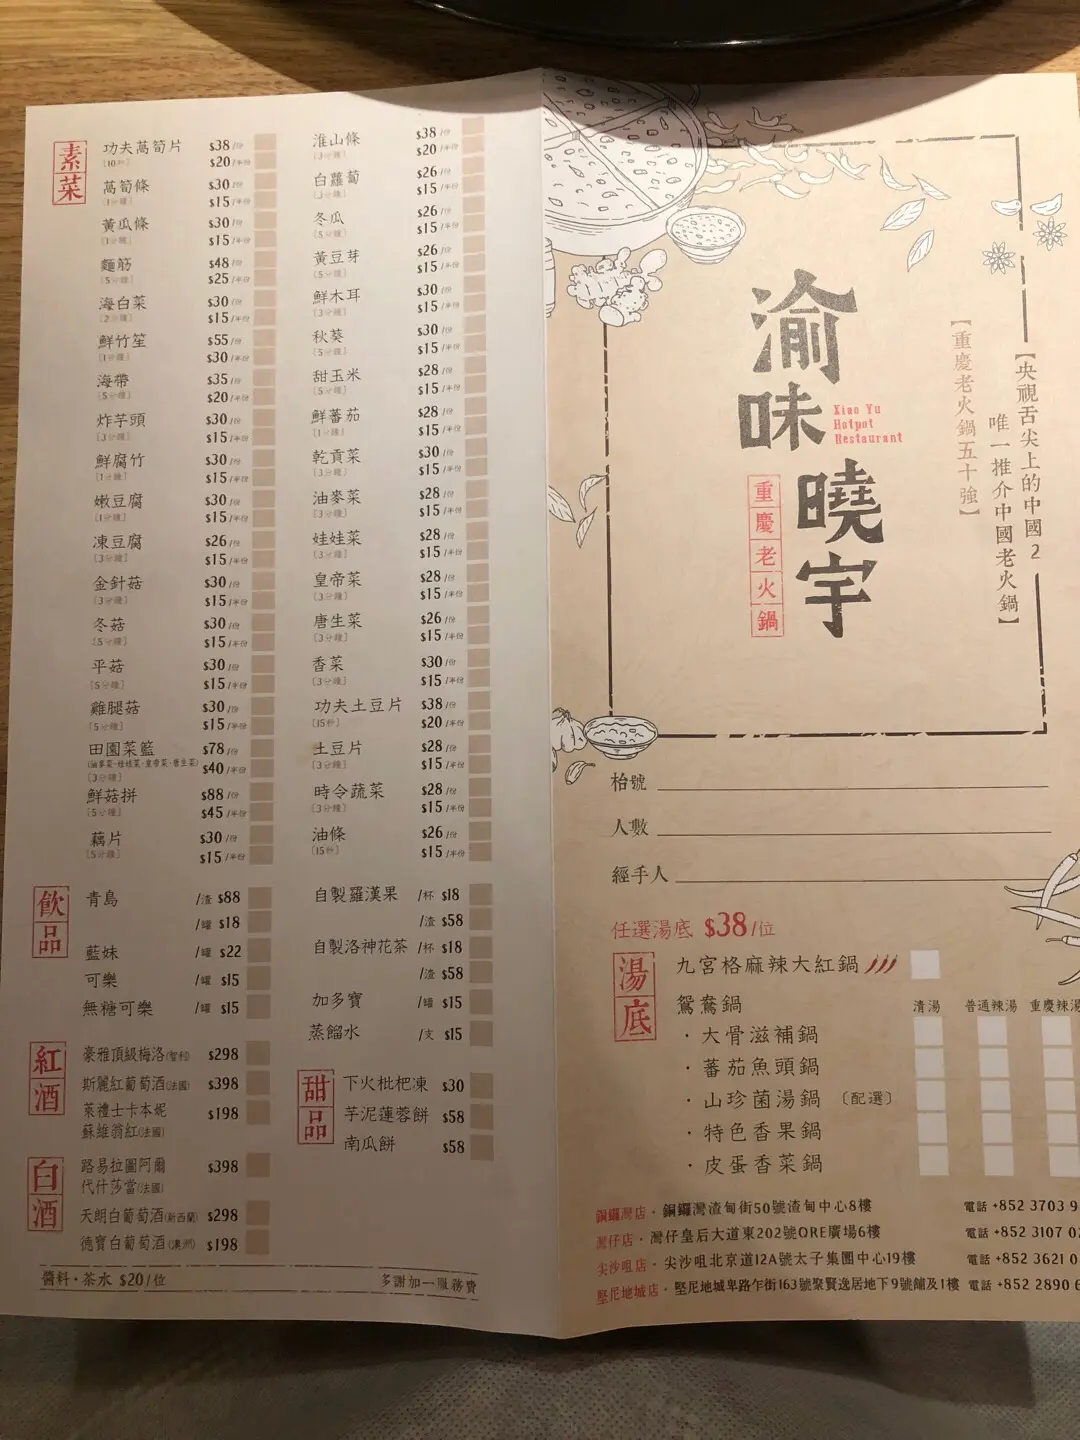 素菜
功夫萵筍片 $38/份
[10秒] $20/半份
萵筍條 $30/份
[1分鐘] $15/半份
黃瓜條 $30/份
[1分鐘] $15/半份
麵筋 $48/份
[5分鐘] $25/半份
海白菜 $30/份
[2分鐘] $15/半份
鮮竹笙 $55/份
[1分鐘] $30/半份
海帶 $35/份
[5分鐘] $20/半份
炸芋頭 $30/份
[3分鐘] $15/半份
鮮腐竹 $30/份
[1分鐘] $15/半份
嫩豆腐 $30/份
[1分鐘] $15/半份
凍豆腐 $26/份
[3分鐘] $15/半份
金針菇 $30/份
[3分鐘] $15/半份
冬菇 $30/份
[5分鐘] $15/半份
平菇 $30/份
[5分鐘] $15/半份
雞腿菇 $30/份
[5分鐘] $15/半份
田園菜籃 $78/份
(油麥菜·娃娃菜·皇帝菜·唐生菜) $40/半份
[3分鐘]
鮮菇拼 $88/份
[5分鐘] $45/半份
藕片 $30/份
[5分鐘] $15/半份
淮山條 $38/份
[3分鐘] $20/半份
白蘿蔔 $26/份
[3分鐘] $15/半份
冬瓜 $26/份
[5分鐘] $15/半份
黃豆芽 $26/份
[5分鐘] $15/半份
鮮木耳 $30/份
[3分鐘] $15/半份
秋葵 $30/份
[5分鐘] $15/半份
甜玉米 $28/份
[5分鐘] $15/半份
鮮蕃茄 $28/份
[1分鐘] $15/半份
乾貢菜 $30/份
[3分鐘] $15/半份
油麥菜 $28/份
[3分鐘] $15/半份
娃娃菜 $28/份
[3分鐘] $15/半份
皇帝菜 $28/份
[3分鐘] $15/半份
唐生菜 $26/份
[3分鐘] $15/半份
香菜 $30/份
[3分鐘] $15/半份
功夫土豆片 $38/份
[15秒] $20/半份
土豆片 $28/份
[3分鐘] $15/半份
時令蔬菜 $28/份
[3分鐘] $15/半份
油條 $26/份
[15秒] $15/半份
飲品
青島 /渣 $88
/罐 $18
藍妹 /罐 $22
可樂 /罐 $15
無糖可樂 /罐 $15
自製羅漢果 /杯 $18
/渣 $58
自製洛神花茶 /杯 $18
/渣 $58
加多寶 /罐 $15
蒸餾水 /支 $15
紅酒
豪雅頂級梅洛(智利) $298
斯麗紅葡萄酒(法國) $398
萊禮士卡本妮 $198
蘇維翁紅(法國)
白酒
路易拉圖阿爾 $398
代什莎當(法國)
天朗白葡萄酒(新西蘭) $298
德寶白葡萄酒(澳洲) $198
甜品
下火枇杷凍 $30
芋泥蓮蓉餅 $58
南瓜餅 $58
醬料·茶水 $20/位
多謝加一服務費
【央視舌尖上的中國2
唯一推介中國老火鍋】
【重慶老火鍋五十強】
渝味曉宇
Xiao Yu
Hotpot
Restaurant
重慶老火鍋
枱號
人數
經手人
任選湯底 $38/位
湯底
九宮格麻辣大紅鍋
鴛鴦鍋 清湯 普通辣湯 重慶辣湯
·大骨滋補鍋
·蕃茄魚頭鍋
·山珍菌湯鍋 〔配選〕
·特色香果鍋
·皮蛋香菜鍋
銅鑼灣店·銅鑼灣渣甸街50號渣甸中心8樓 電話 +852 3703 9
灣仔店·灣仔皇后大道東202號QRE廣場6樓 電話 +852 3107 0
尖沙咀店·尖沙咀北京道12A號太子集團中心19樓 電話 +852 3621 0
堅尼地城店·堅尼地城卑路乍街163號聚賢逸居地下9號舖及1樓 電話 +852 2890 6